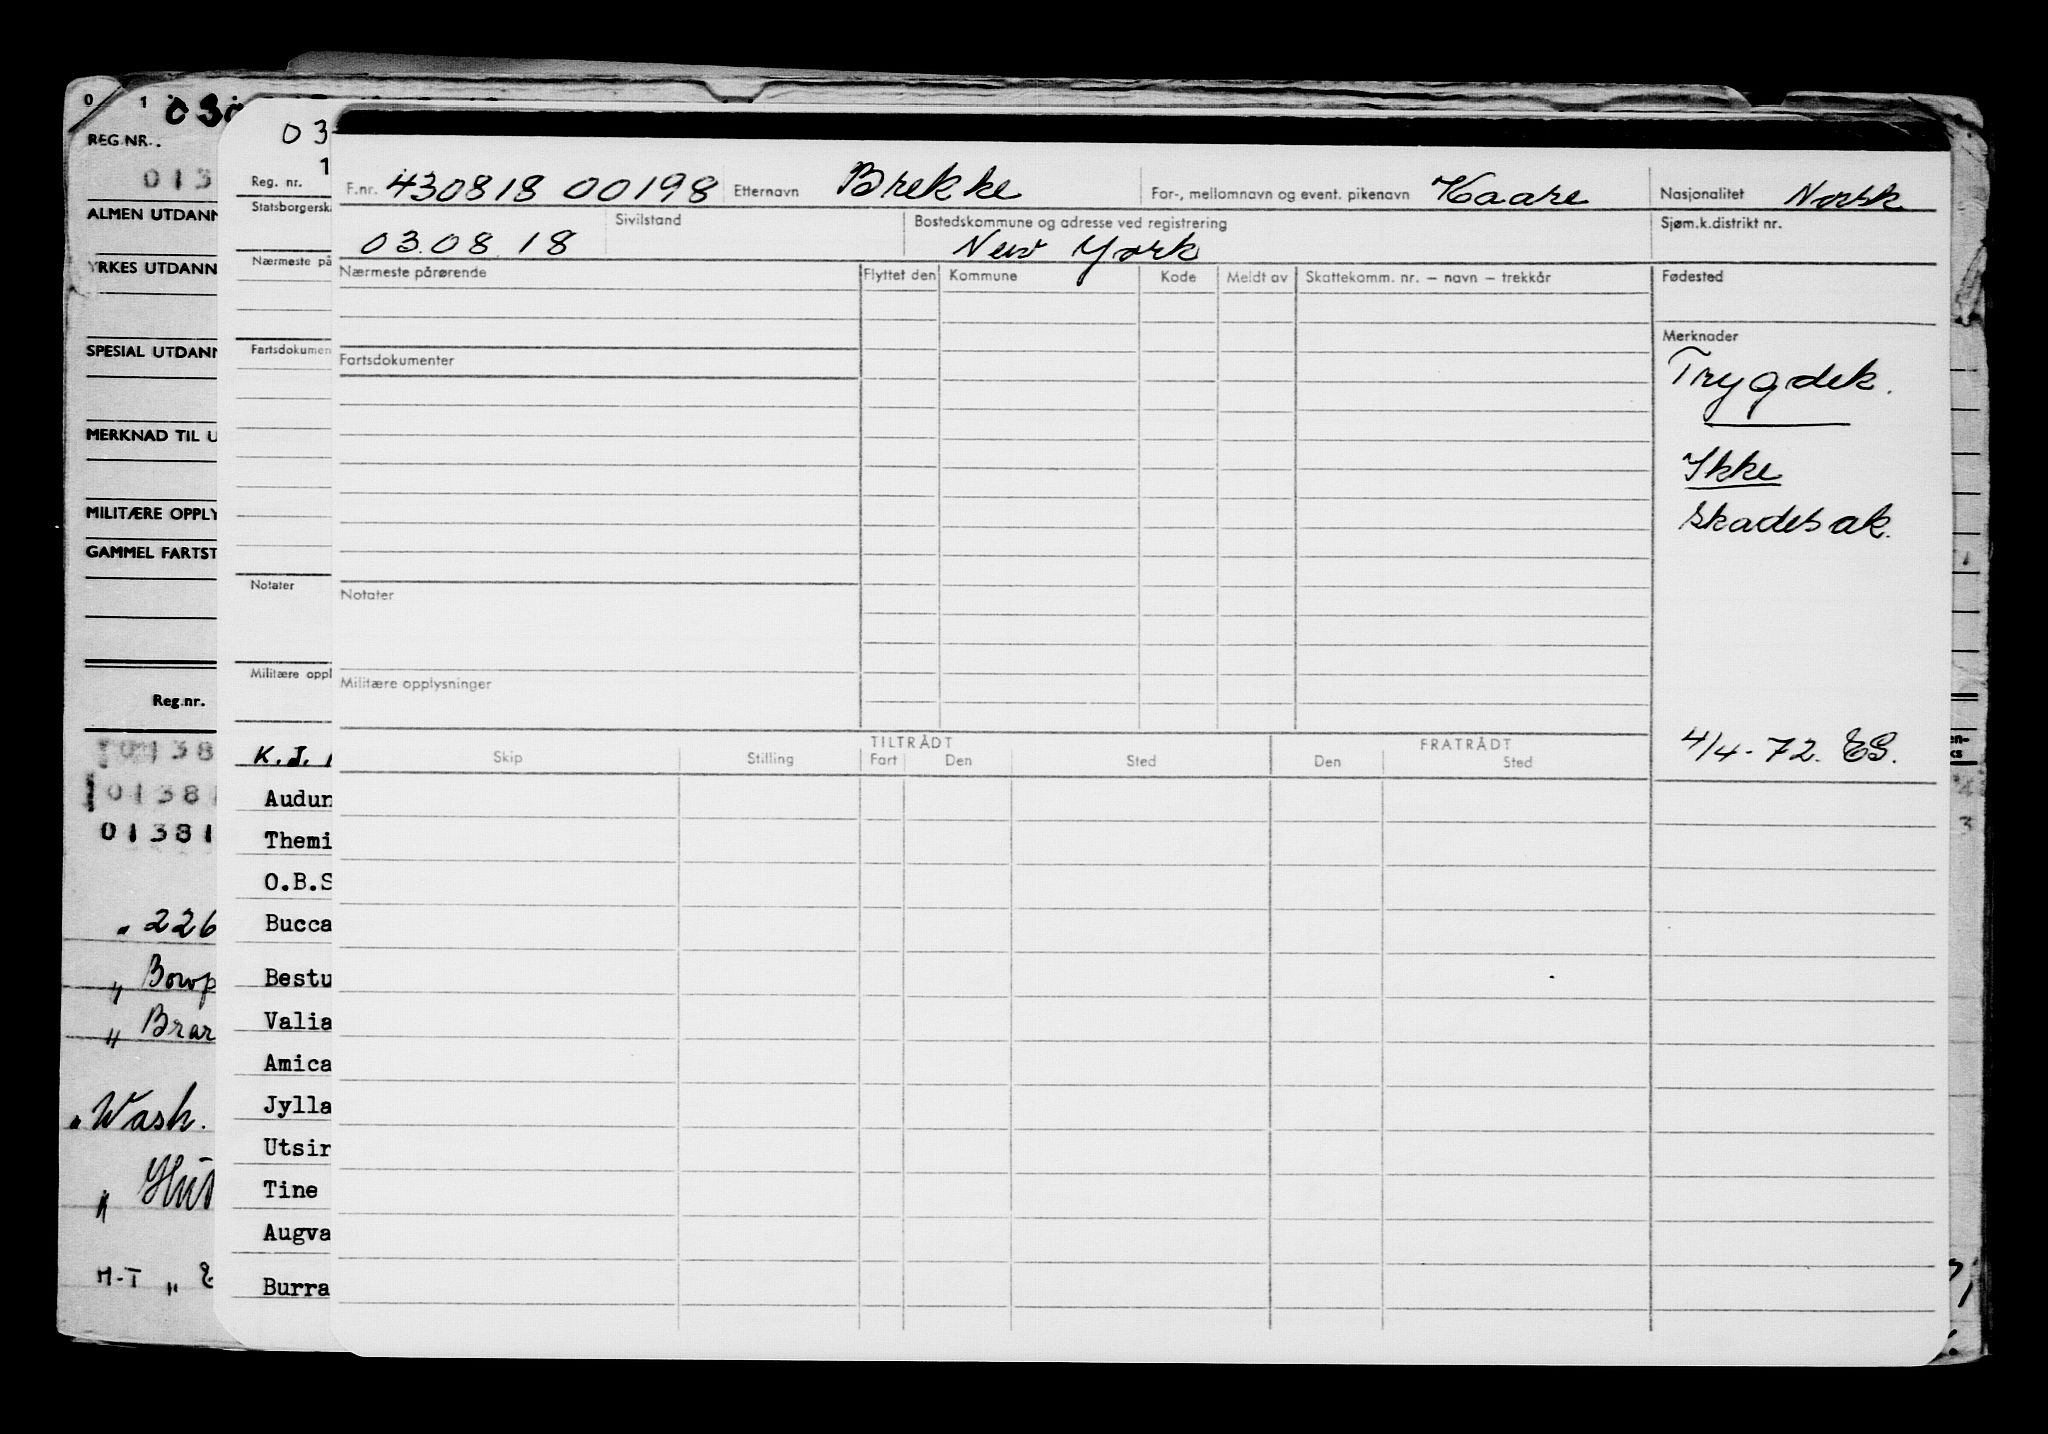 0 1
REG.NR.
013
ALMEN UTDANN
YRKES UTDANN
SPESIAL UTDANN
MERKNAD TIL U
MILITÆRE OPPLY
GAMMEL FARTST
Reg.nr.
0138
01381
" 226
" Wash.
M-T "
03
1
Reg. nr.
Statsborgerska
Nærmeste på
Fartsdokumen
Notater
Militære oppl
K. J.
Audun
Themi
O.B.S
Bucca
Bestu
Valia
Amica
Jylla
Utsir
Tine
Augva
Burra
F.nr. 430818 00198 Etternavn Brekke For-, mellomnavn og event. pikenavn Kaare Nasjonalitet Norsk
03.08.18 Sivilstand Bostedskommune og adresse ved registrering New York Sjøm.k.distrikt nr.
Nærmeste pårørende Flyttet den Kommune Kode Meldt av Skattekomm. nr. – navn – trekkår Fødested
Merknader
Fartsdokumenter
Trygdek.
Ikke
skadesak.
Notater
Militære opplysninger
4/4-72. ES.
TILTRÅDT FRATRÅDT
Skip Stilling Fart Den Sted Den Sted